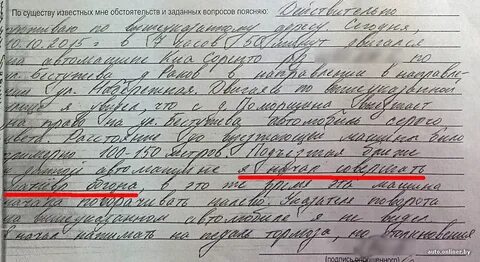 По существу известных мне обстоятельств и заданных вопросов поясняю: Действительно
проживаю по вышеуказанному адресу. Сегодня,
10.10.2015 г в 7 часов 50 минут двигался
на автомашине Киа Соренто
ул. Выступова д. Раков в направлении в направле-
нии ул. Набережная. Двигаясь по вышеуказанной
я увидел, что с д. выезжает
на ул. Выступова автомобиль серого
цвета. Расстояние до выезжающей машины было
примерно 100-150 метров. Подъезжая ближе
к данной автомашине я начал совершать
обгона, в это же время эта машина
начала поворачивать налево. Указателя поворота
на вышеуказанном автомобиле я не видел
Я начал нажимать на педаль тормоза, но
auto.onliner.by